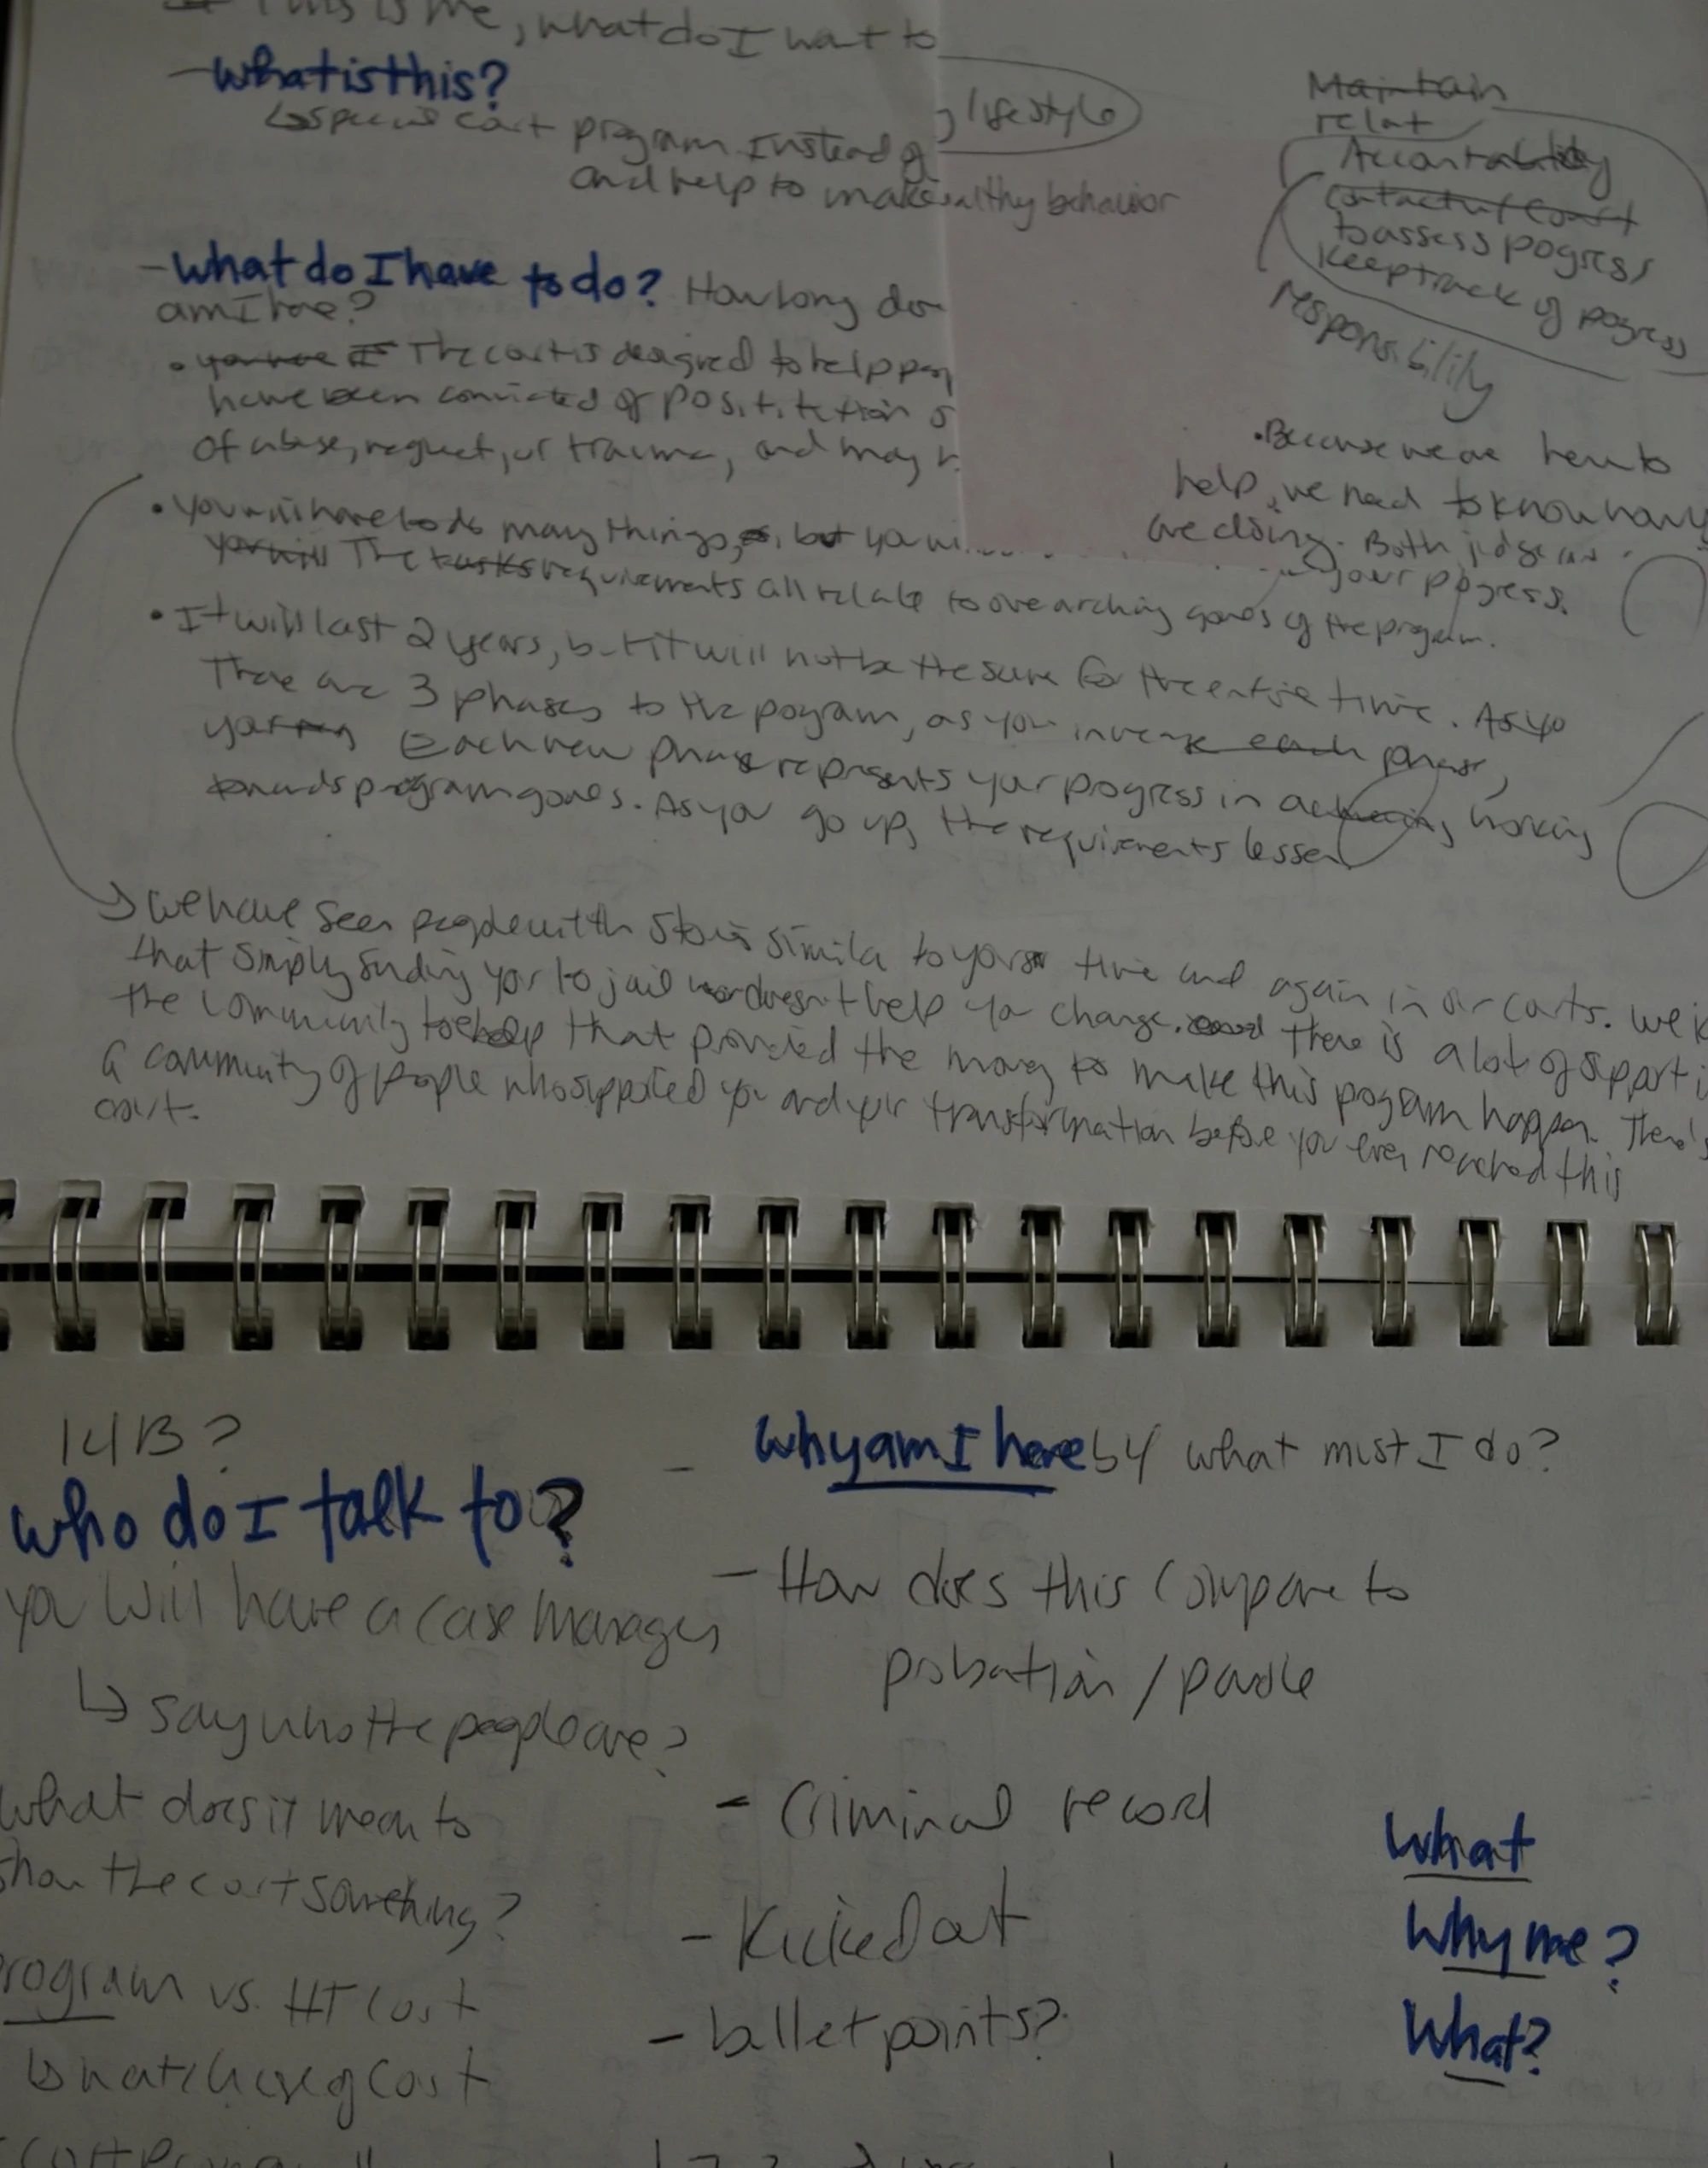 This is me, what do I want to
- What is this?
↳ special court program. Instead of
and help to make
lifestyle
healthy behavior
Maintain
relat
Accountability
to assess pogress
keep track of pogress
responsibility
- What do I have to do? How long do
am I here?
• The court is designed to help peop
have been convicted of
of abuse, neglect, or trauma, and may h
• Because we are here to
help, we need to know how y
are doing. Both judge
your pogress.
• You will have to do many things, but you wi
The tasks requirements all relate to overarching goals of the program.
• It will last 2 years, but it will not be the same for the entire time. As yo
There are 3 phases to the pogram, as you each phase,
Each new phase represents your progress in working
towards program goals. As you go up, the requirements lessen
→ We have seen people with stories similar to yours time and again in our courts. We k
that simply sending you to jail doesn't help you change. There is a lot of support i
the community that provided the money to make this pogram happen. There's
a community of people who supported you and your transformation before you ever reached this
court.
14B?
Who do I talk to?
you will have a case manager
↳ Say who the people are?
What does it mean to
show the court something?
rogram vs. HT Court
- Why am I here by what must I do?
- How does this compare to
probation / parole
- Criminal record
- Kicked out
- bullet points?
What
Why me?
What?